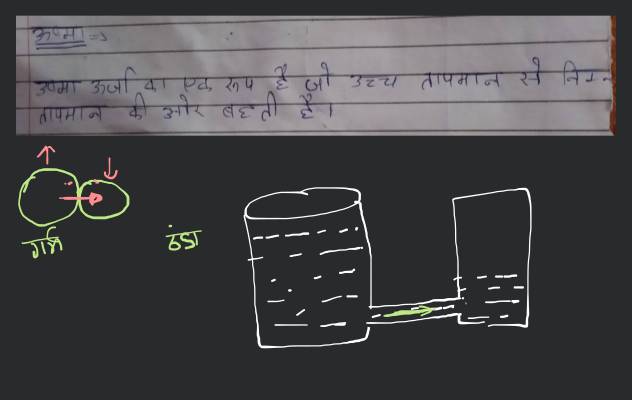 ऊष्मा =>
उष्मा ऊर्जा का एक रूप है जो उच्च तापमान से निम्न
तापमान की ओर बहती है।
गर्म
ठंडा